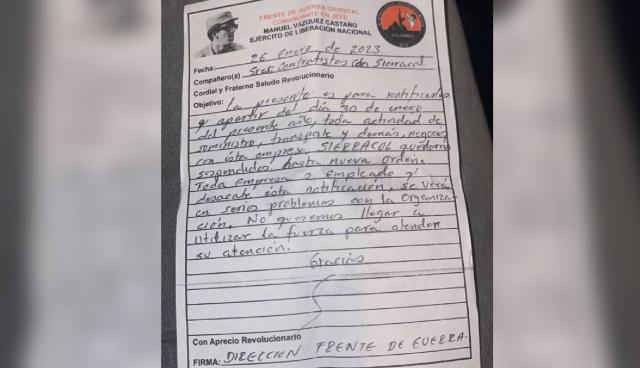 FRENTE DE GUERRA ORIENTAL
COMANDANTE EN JEFE
MANUEL VÁZQUEZ CASTAÑO
EJÉRCITO DE LIBERACIÓN NACIONAL
COLOMBIA
Fecha: 26 Enero de 2023.
Compañero(a) Sres: Contratistas con Sierracol.
Cordial y Fraterno Saludo Revolucionario
Objetivo: La presente es para notificarles
q apartir del día 30 de enero
del presente año, toda actividad de
suministro, transporte y demás, negocios
con ésta empresa, SIERRACOL quedarán
suspendidos hasta nueva orden.
Toda Empresa o empleado q
desacate ésta notificación, se verá
en serios problemas con la Organiza-
ción. No queremos llegar a
utilizar la fuerza para atender
su atención.
Gracias
Con Aprecio Revolucionario
FIRMA: DIRECCION FRENTE DE GUERRA.